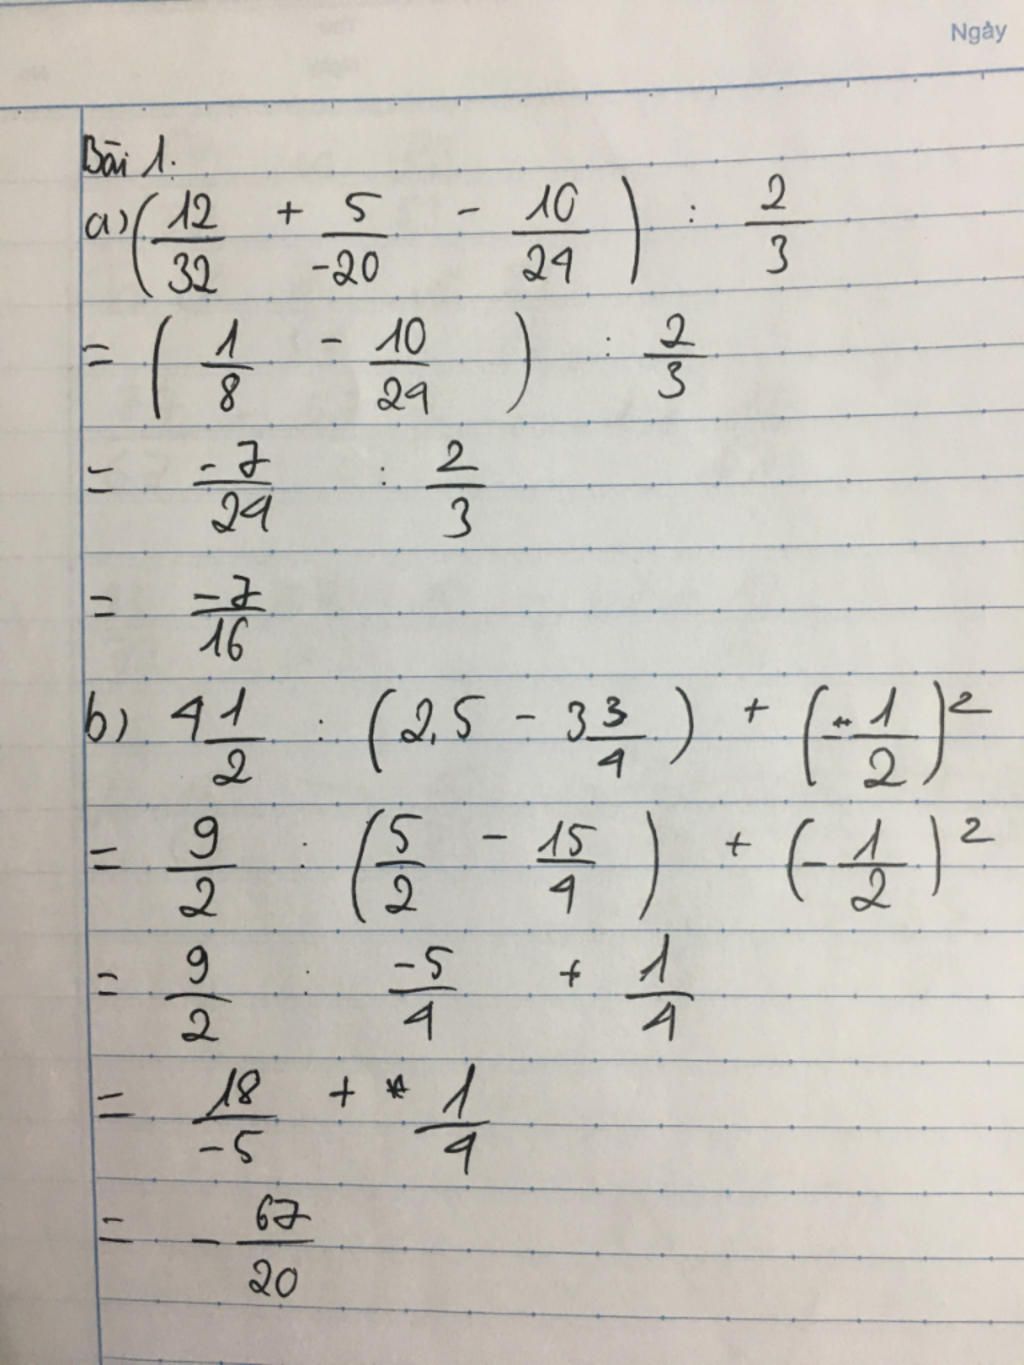 Ngày
Bài 1:
a) (12/32 + 5/-20 - 10/24) : 2/3
= (1/8 - 10/24) : 2/3
= -7/24 : 2/3
= -7/16
b) 4 1/2 : (2,5 - 3 3/4) + (-1/2)²
= 9/2 : (5/2 - 15/4) + (-1/2)²
= 9/2 : -5/4 + 1/4
= 18/-5 + 1/4
= - 67/20